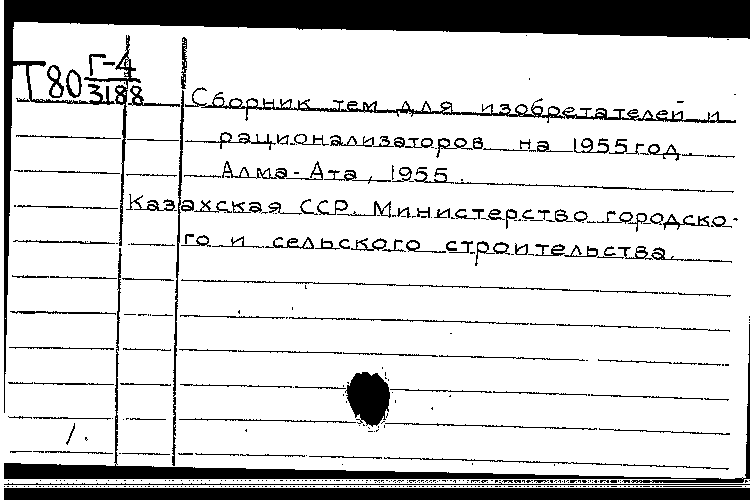 Т80 Г-4
3188
Сборник тем для изобретателей и
рационализаторов на 1955 год.
Алма-Ата, 1955.
Казахская ССР. Министерство городско-
го и сельского строительства.
1.